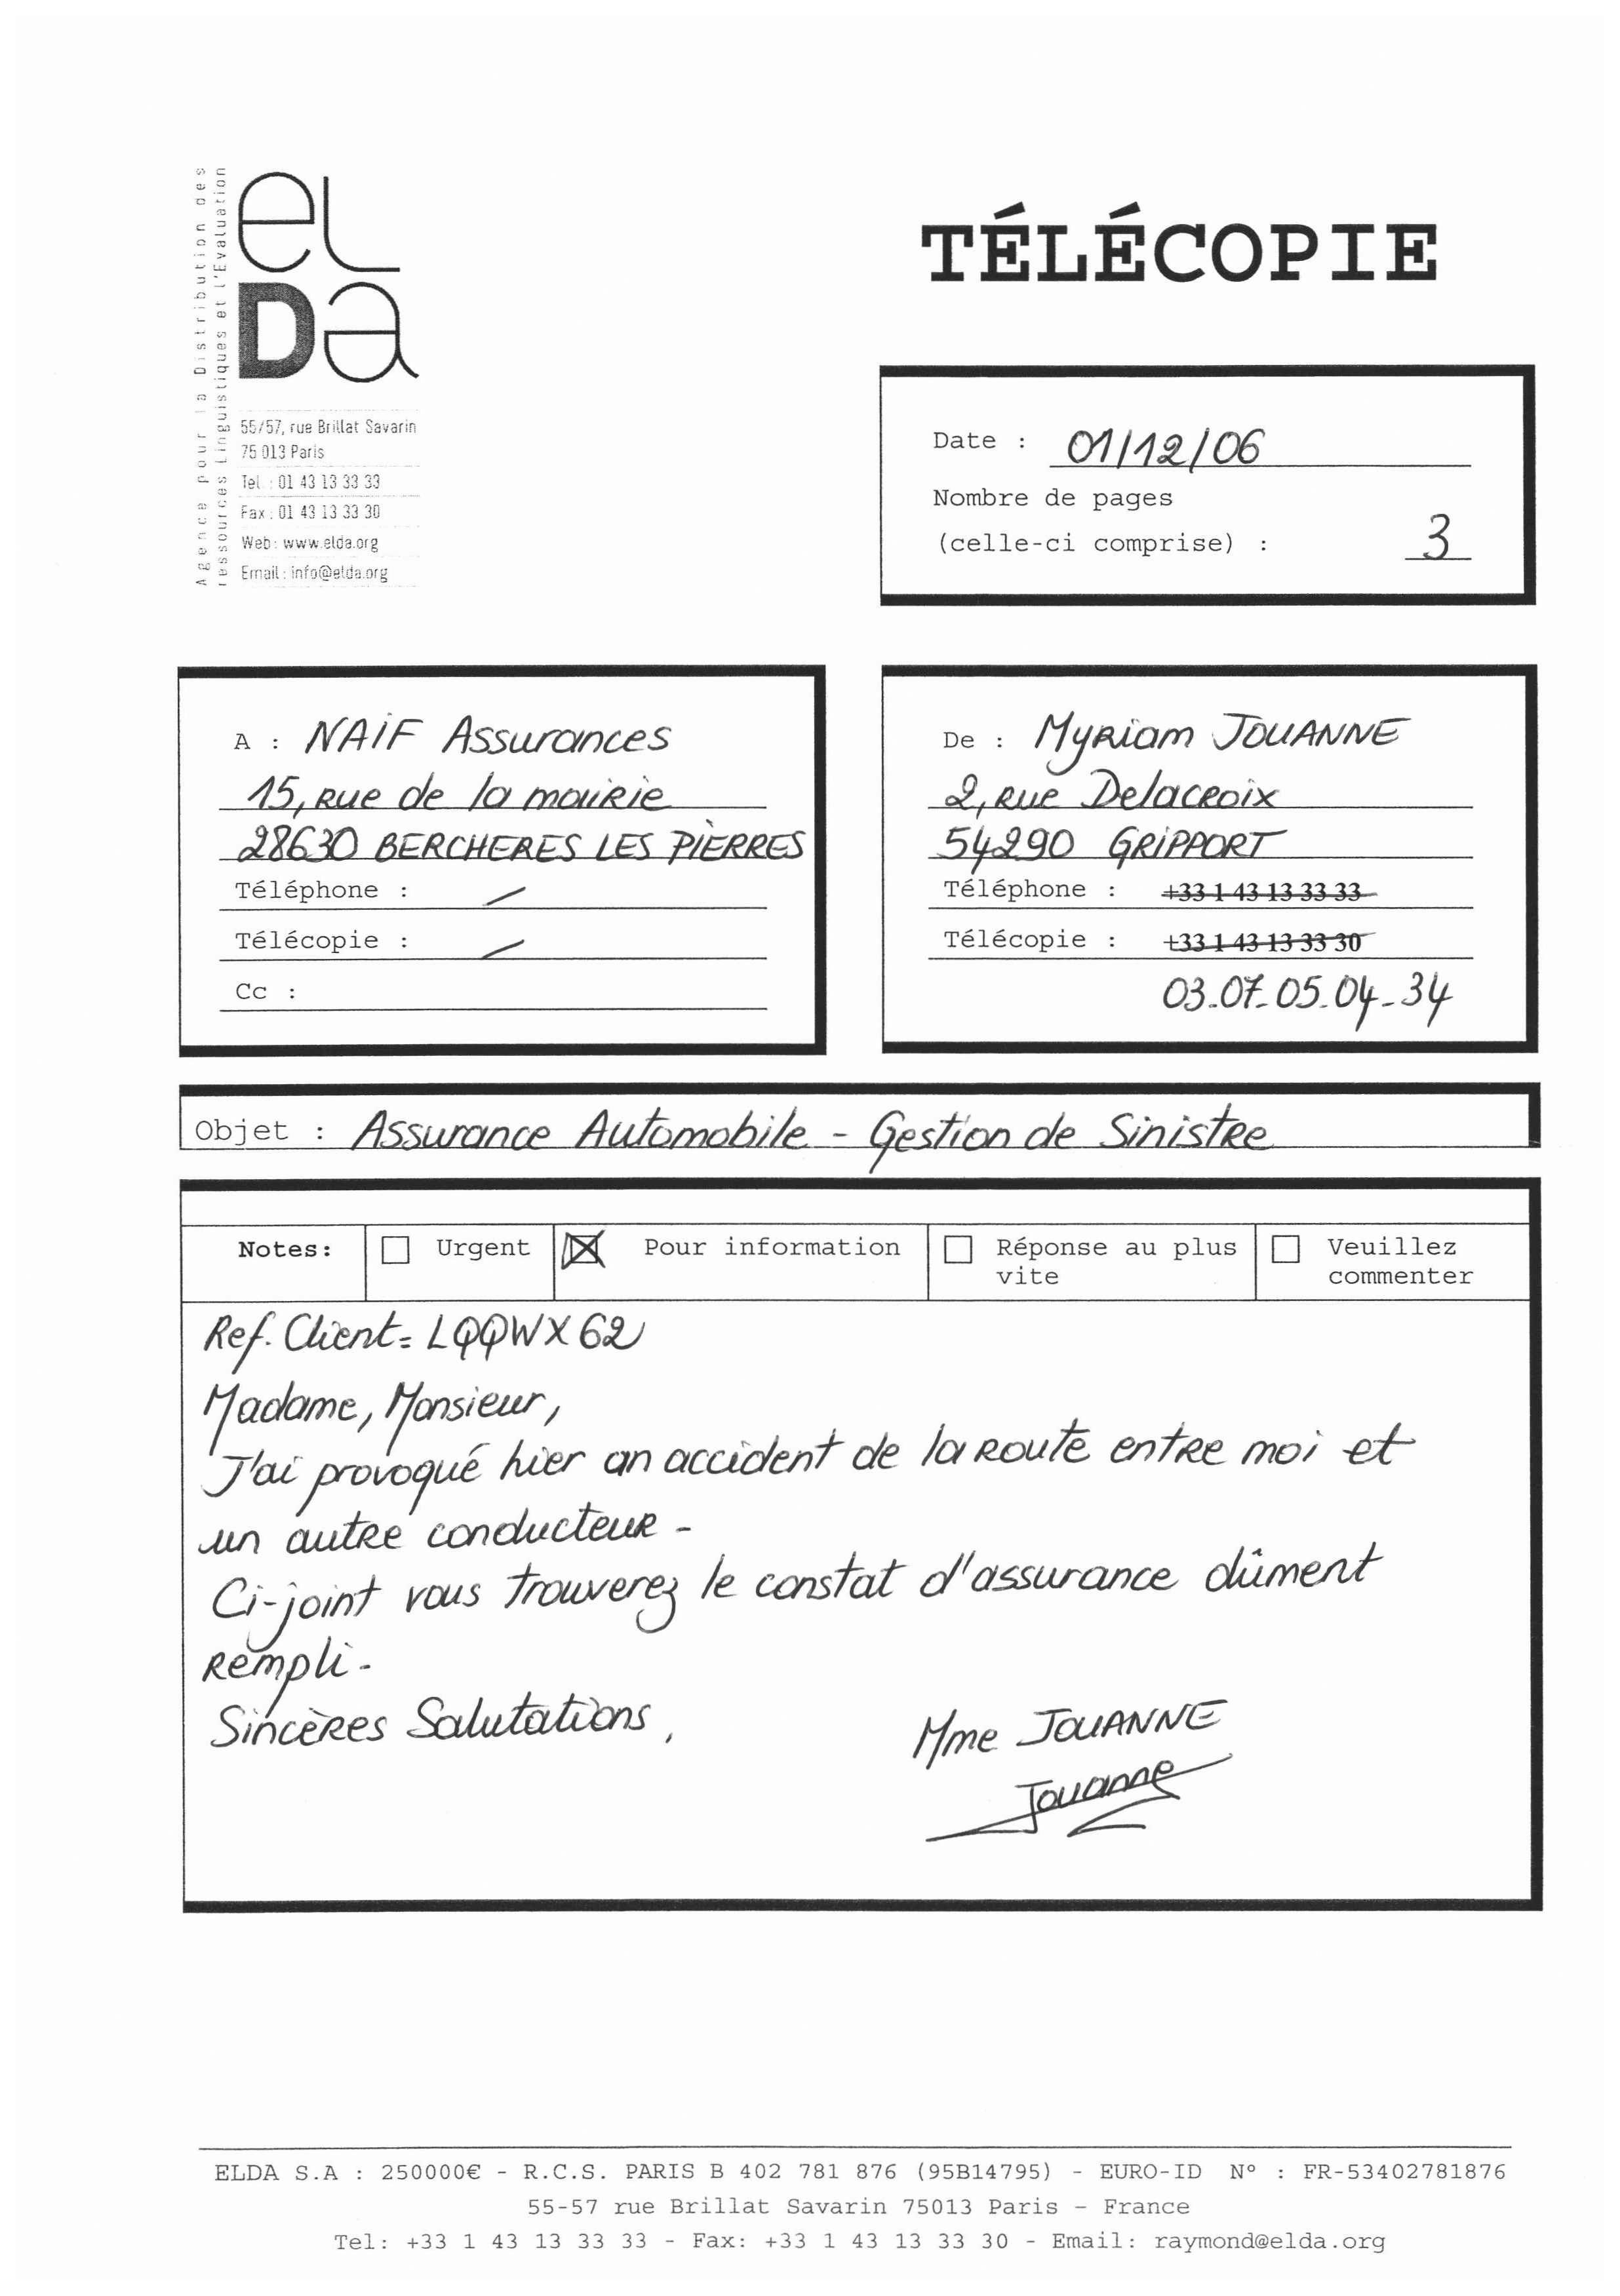 Agence pour la Distribution des
ressources Linguistiques et l'Evaluation
eL
Da
55/57, rue Brillat Savarin
75 013 Paris
Tel. : 01 43 13 33 33
Fax : 01 43 13 33 30
Web : www.elda.org
Email : info@elda.org
TÉLÉCOPIE
Date : 01/12/06
Nombre de pages
(celle-ci comprise) : 3
A : NAiF Assurances
15, rue de la mairie
28630 BERCHERES LES PIERRES
Téléphone : /
Télécopie : /
Cc :
De : Myriam JOUANNE
2, rue Delacroix
54290 GRiPPORT
Téléphone : +33 1 43 13 33 33
Télécopie : +33 1 43 13 33 30
03.07.05.04.34
Objet : Assurance Automobile - Gestion de Sinistre
Notes: Urgent Pour information Réponse au plus vite Veuillez commenter
Ref. Client = LQQWX62
Madame, Monsieur,
J'ai provoqué hier un accident de la route entre moi et
un autre conducteur -
Ci-joint vous trouverez le constat d'assurance dûment
rempli -
Sincères Salutations,
Mme JOUANNE
Jouanne
ELDA S.A : 250000€ - R.C.S. PARIS B 402 781 876 (95B14795) - EURO-ID N° : FR-53402781876
55-57 rue Brillat Savarin 75013 Paris - France
Tel: +33 1 43 13 33 33 - Fax: +33 1 43 13 33 30 - Email: raymond@elda.org